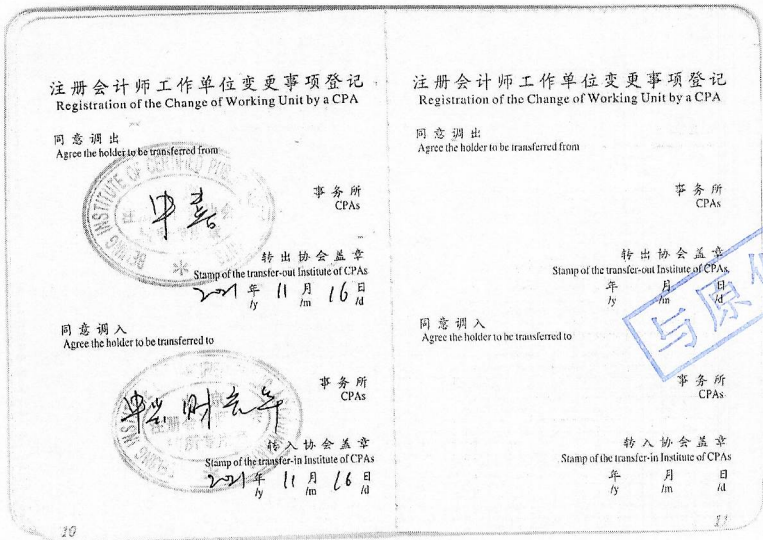 注册会计师工作单位变更事项登记
Registration of the Change of Working Unit by a CPA
同意调出
Agree the holder to be transferred from
BEIJING INSTITUTE OF CERTIFIED PUBLIC
中喜
事务所
CPAs
转出协会盖章
Stamp of the transfer-out Institute of CPAs
2021 年 11 月 16 日
/y /m /d
同意调入
Agree the holder to be transferred to
事务所
CPAs
转入协会盖章
Stamp of the transfer-in Institute of CPAs
2021 年 11 月 16 日
/y /m /d
10
注册会计师工作单位变更事项登记
Registration of the Change of Working Unit by a CPA
同意调出
Agree the holder to be transferred from
事务所
CPAs
转出协会盖章
Stamp of the transfer-out Institute of CPAs
年 月 日
/y /m /d
与原
同意调入
Agree the holder to be transferred to
事务所
CPAs
转入协会盖章
Stamp of the transfer-in Institute of CPAs
年 月 日
/y /m /d
11